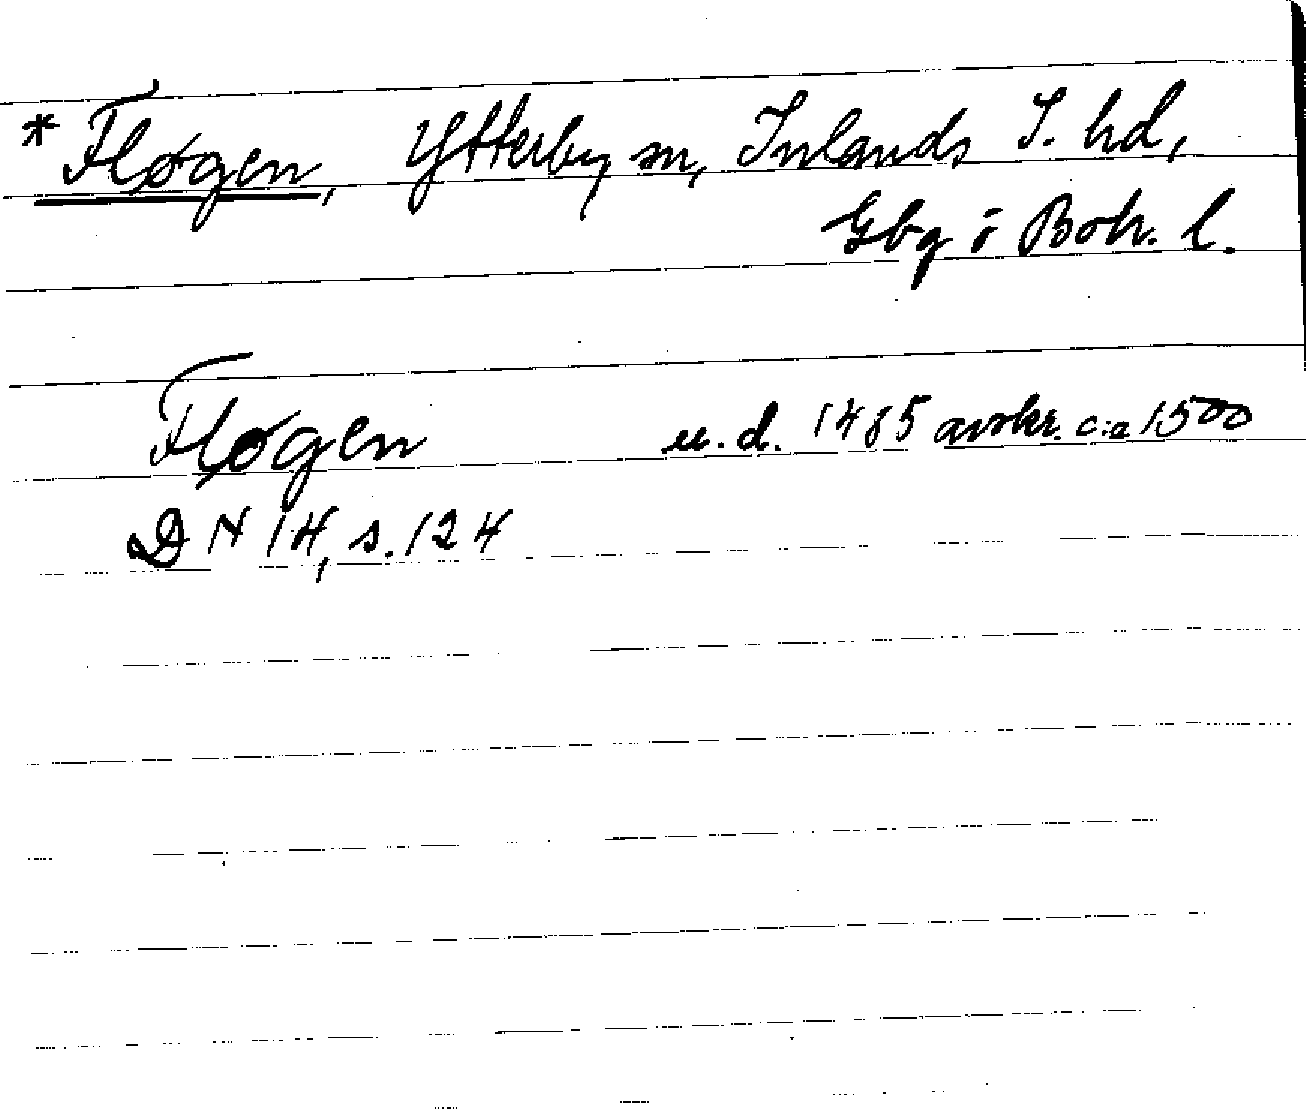 *Fløgen, Ytterby sn, Inlands S. hd,
Gbg o Boh. l.
Fløgen u.d. 1485 avskr. c:a 1500
DN 14, s. 124